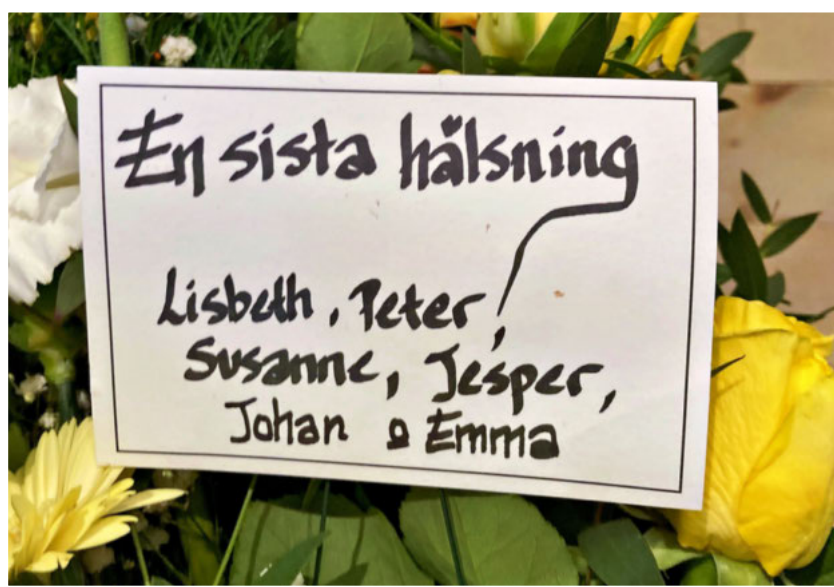 En sista hälsning
Lisbeth, Peter,
Susanne, Jesper,
Johan o Emma